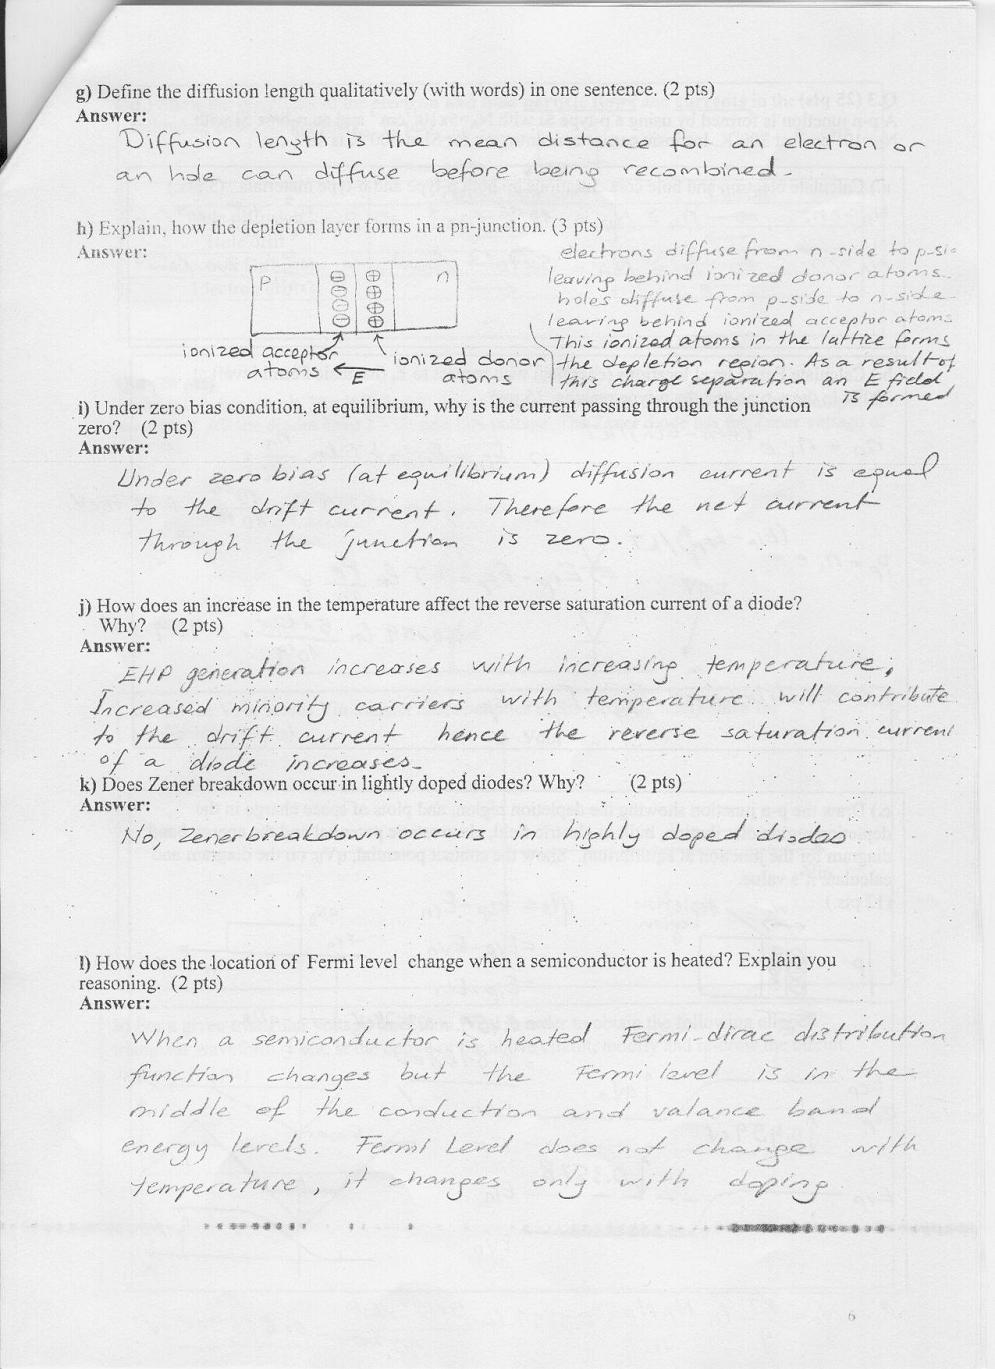 g) Define the diffusion length qualitatively (with words) in one sentence. (2 pts)
Answer:
Diffusion length is the mean distance for an electron or
an hole can diffuse before being recombined.
h) Explain, how the depletion layer forms in a pn-junction. (3 pts)
Answer:
p ⊖ ⊕ n
⊖ ⊕
⊖ ⊕
⊖ ⊕
ionized acceptor
atoms
E
ionized donor
atoms
electrons diffuse from n-side to p-si
leaving behind ionized donor atoms.
holes diffuse from p-side to n-side
leaving behind ionized acceptor atoms
This ionized atoms in the lattice forms
the depletion region. As a result of
this charge separation an E field
is formed
i) Under zero bias condition, at equilibrium, why is the current passing through the junction
zero? (2 pts)
Answer:
Under zero bias (at equilibrium) diffusion current is equal
to the drift current. Therefore the net current
through the junction is zero.
j) How does an increase in the temperature affect the reverse saturation current of a diode?
Why? (2 pts)
Answer:
EHP generation increases with increasing temperature;
Increased minority carriers with temperature will contribute
to the drift current hence the reverse saturation current
of a diode increases.
k) Does Zener breakdown occur in lightly doped diodes? Why? (2 pts)
Answer:
No, Zener breakdown occurs in highly doped diodes
l) How does the location of Fermi level change when a semiconductor is heated? Explain you
reasoning. (2 pts)
Answer:
When a semiconductor is heated Fermi-dirac distribution
function changes but the Fermi level is in the
middle of the conduction and valance band
energy levels. Fermi Level does not change with
temperature, it changes only with doping.
6